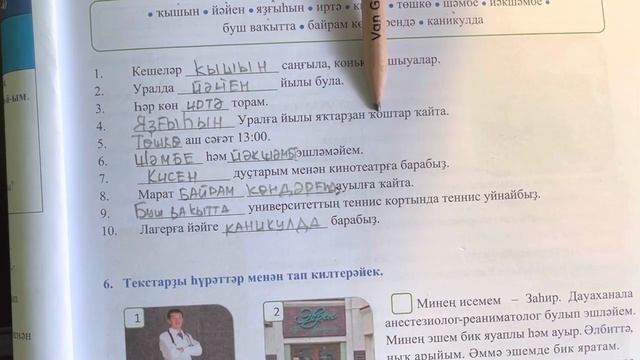 • ҡышын • йәйен • яҙғыһын • иртә • төшкө • шәмбе • йәкшәмбе •
буш ваҡытта • байрам көндәрендә • каникулда
1. Кешеләр ҡышын саңғыла, шыуалар.
2. Уралда йәйен йылы була.
3. Һәр көн иртә торам.
4. Яҙғыһын Уралға йылы яҡтарҙан ҡоштар ҡайта.
5. Төшкө аш сәғәт 13:00.
6. Шәмбе һәм йәкшәмбе эшләмәйем.
7. Кисен дуҫтарым менән кинотеатрға барабыҙ.
8. Марат байрам көндәрендә ауылға ҡайта.
9. Буш ваҡытта университеттың теннис кортында теннис уйнайбыҙ.
10. Лагерға йәйге каникулда барабыҙ.
6. Текстарҙы һүрәттәр менән тап килтерәйек.
1
2
Минең исемем – Заһир. Дауаханала
анестезиолог-реаниматолог булып эшләйем.
Минең эшем бик яуаплы һәм ауыр. Әлбиттә,
ныҡ арыйым. Әммә эшемде бик яратам.